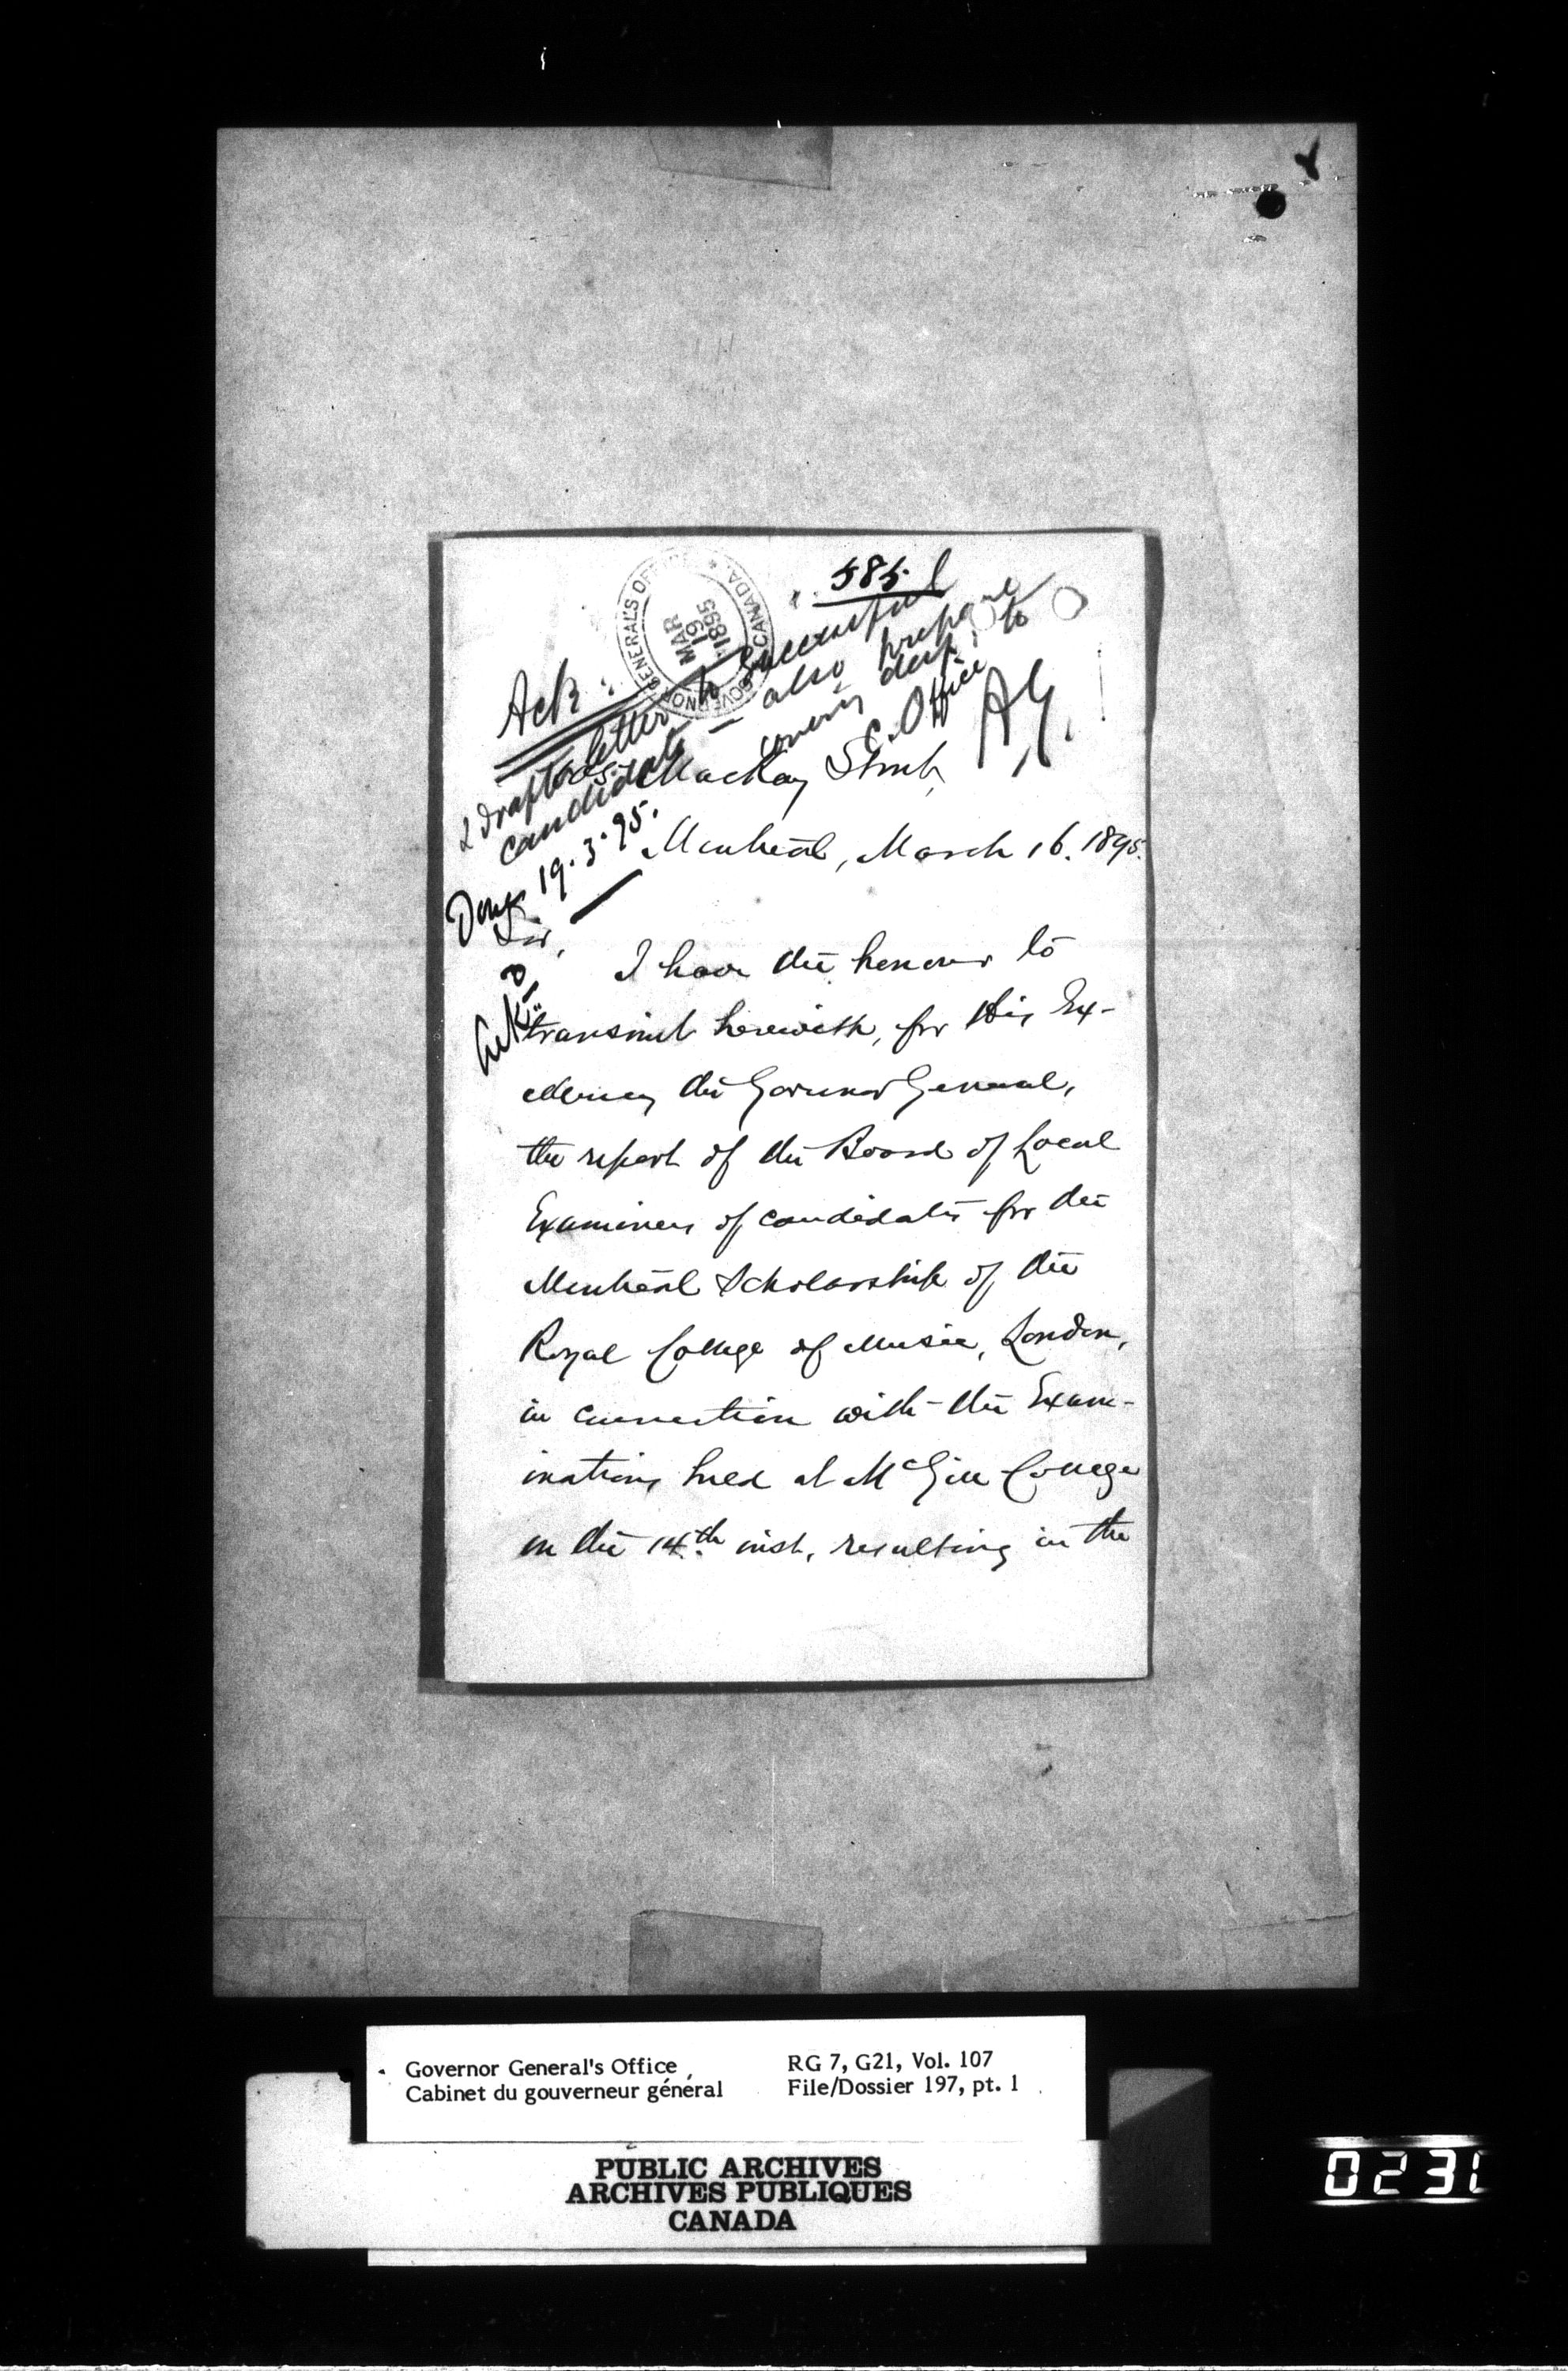 585.
GOVERNOR GENERAL'S OFFICE CANADA.
MAR
19
1895
Ack:
& draft letter to successful
candidate — also prepare
covering desp. to
C. Office
AG.
Done 19.3.95.
MacKay Street,
Montreal, March 16. 1895.
Sir,
I have the honour to
transmit herewith, for His Ex-
cellency the Governor General,
the report of the Board of Local
Examiners of candidates for the
Montreal Scholarship of the
Royal College of Music, London,
in connection with the Exam-
inations held at McGill College
on the 14th inst, resulting in the
Governor General's Office
Cabinet du gouverneur général
RG 7, G21, Vol. 107
File/Dossier 197, pt. 1
PUBLIC ARCHIVES
ARCHIVES PUBLIQUES
CANADA
0231